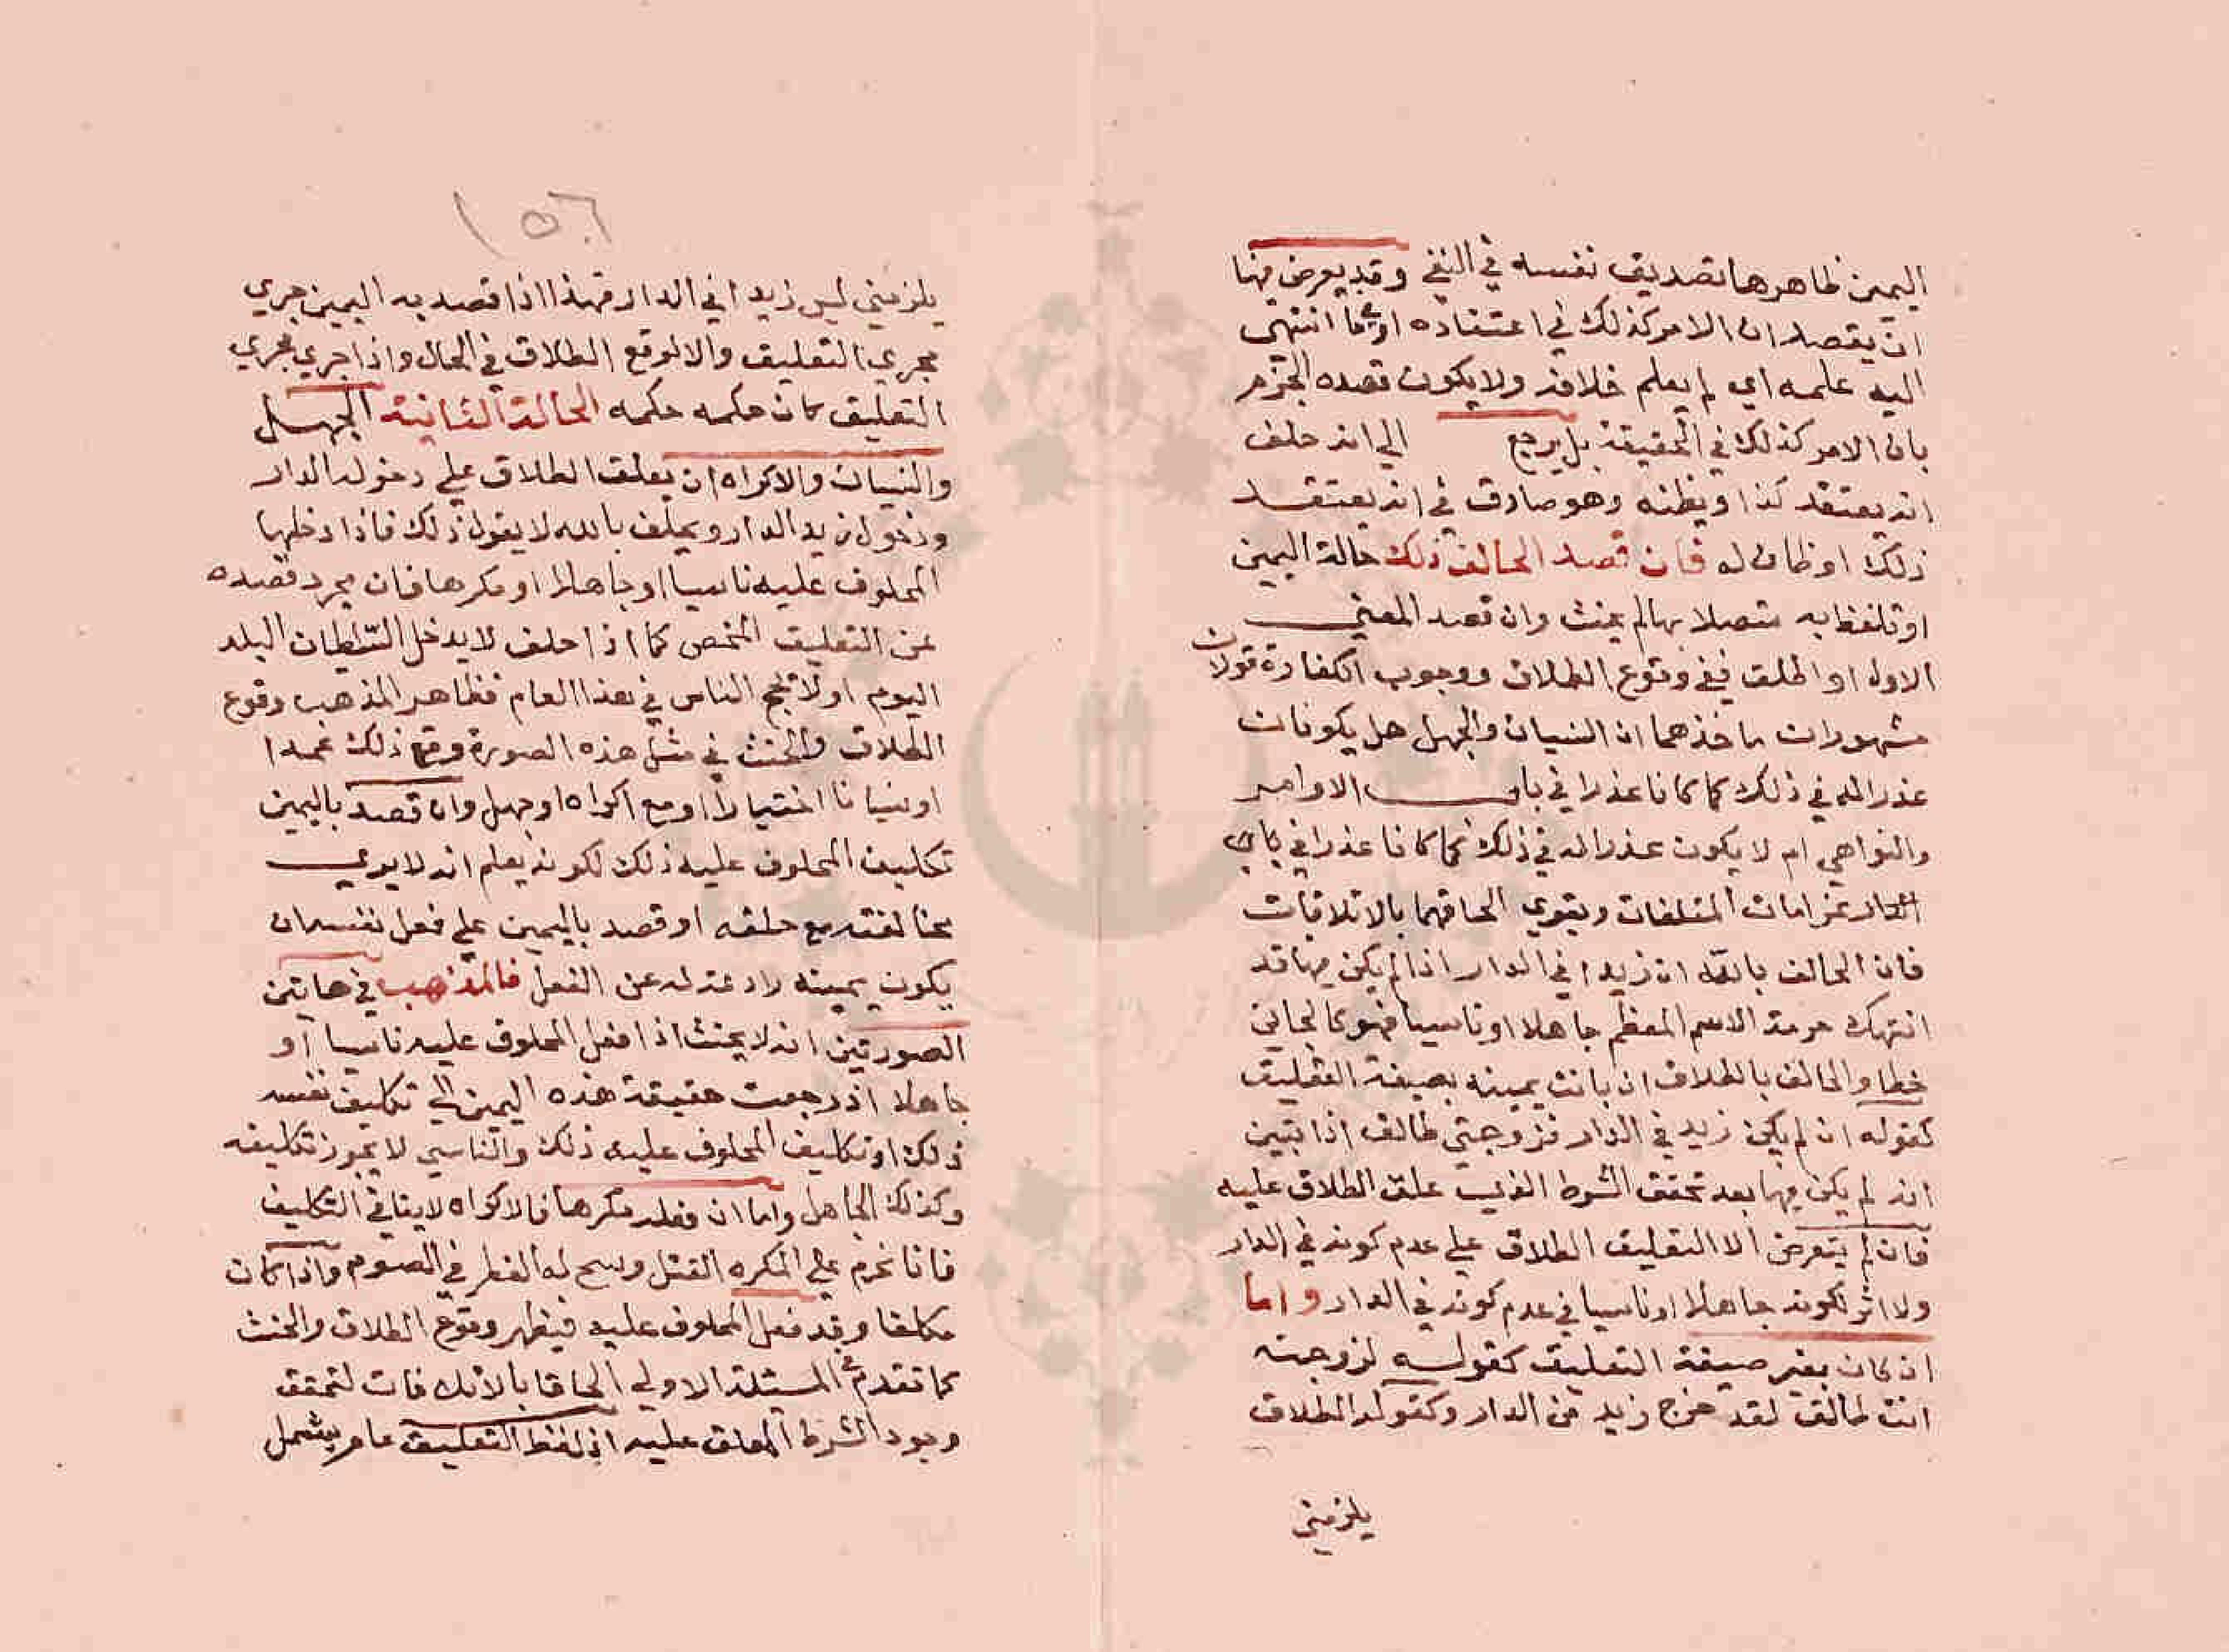 اليمين ظاهرها تصديق نفسه في النفي وقد يعرض فيها
ان يقصد ان الامر كذلك في اعتقاده او فيما انتهى
اليه علمه اي لم يعلم خلافه ولا يكون قصده الجزم
بان الامر كذلك في الحقيقة بل يرجع الي انه حلف
انه يعتقد كذا او يظنه وهو صادق في انه يعتقد
ذلك او ظان له فان قصد الحالف ذلك حالة اليمين
او تلفظ به متصلا بها لم يحنث وان قصد المعني
الاول او اطلق ففي وقوع الطلاق ووجوب الكفارة قولان
مشهوران ماخذهما ان النسيان والجهل هل يكونان
عذرا له في ذلك كما كانا عذرا في باب الاوامر
والنواهي ام لا يكون عذرا له في ذلك كما كانا عذرا في باب
غرامات المتلفات ويقوي الحاقهما بالاتلافات
فان الحالف بالله ان زيدا في الدار اذا لم يكن فيها قد
انتهك حرمة الاسم المعظم جاهلا او ناسيا فهو كالجاني
خطا والحالف بالطلاق ان بانت يمينه بصيغة التعليق
كقوله ان لم يكن زيد في الدار فزوجتي طالق اذا تبين
انه لم يكن فيها بعد تحقق الشرط الذي علق الطلاق عليه
فان لم يتعرض الا لتعليق الطلاق علي عدم كونه في الدار
ولا اثر لكونه جاهلا او ناسيا في عدم كونه في الدار واما
ان كان بغير صيغة التعليق كقوله لزوجته
انت طالق لقد خرج زيد من الدار وكقوله الطلاق
يلزمني
١٥٦
يلزمني ليس زيدا في الدار فهذا اذا قصد به اليمين جري
مجري التعليق والا لوقع الطلاق في الحال واذا جري مجري
التعليق كان حكمه حكمه الحالة الثانية الجهل
والنسيان والاكراه ان يعلق الطلاق علي دخوله الدار
ودخول زيد الدار ويحلف بالله لا يفعل ذلك فاذا دخلها
المحلوف عليه ناسيا او جاهلا او مكرها فان مجرد قصده
عن التعليق المحض كما اذا حلف لا يدخل السلطان البلد
اليوم اولا تحج الناس في هذا العام فظاهر المذهب وقوع
الطلاق والحنث في مثل هذه الصورة وقع ذلك عمدا
او نسيانا اختيارا او مع اكراه او جهل وان قصد باليمين
تكليف المحلوف عليه ذلك لكونه يعلم انه لا يري
مخالفته مع حلفه او قصد باليمين علي فعل نفسه ان
يكون يمينه رادعة له عن الفعل فالمذهب في هاتين
الصورتين انه لا يحنث اذا فعل المحلوف عليه ناسيا او
جاهلا اذ رجعت حقيقة هذه اليمين الي تكليف نفسه
ذلك او تكليف المحلوف عليه ذلك والناسي لا يجوز تكليفه
وكذلك الجاهل واما ان فعله مكرها فالاكراه لا ينافي التكليف
فانا نحرم علي المكره القتل ونبيح له الفطر في الصوم واذا كان
مكلفا وقد فعل المحلوف عليه فيظهر وقوع الطلاق والحنث
كما تقدم في المسئلة الاولي الحاقا بالاتلافات لتحقق
وجود الشرط المعلق عليه اذ لفظ التعليق عام يشمل